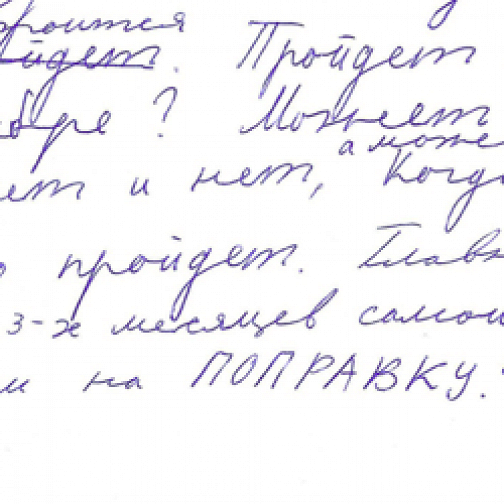 троится
йдет. Пройдет
бре? Может
а може
ет и нет, Когд
о пройдет. Главн
3-х месяцев самои
и на ПОПРАВКУ.